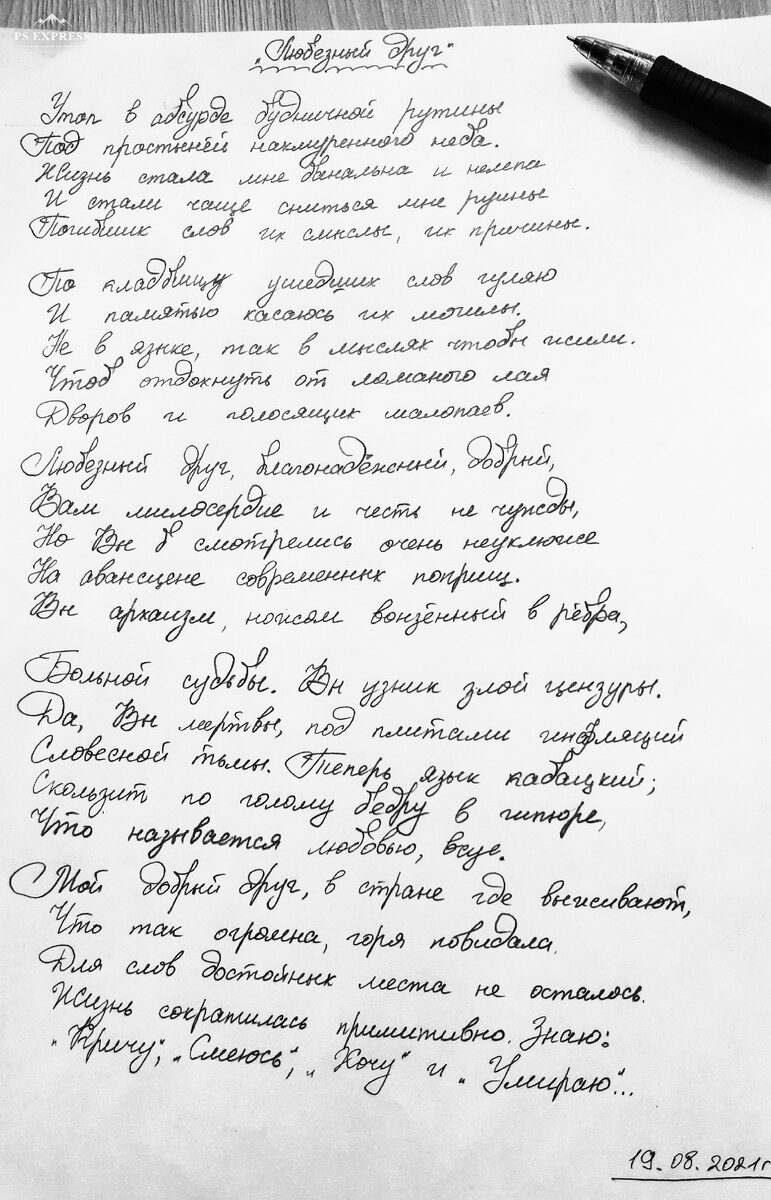 PS EXPRESS
"Любезный друг"
Утоп в абсурде будничной рутины
Под простынёй нахмуренного неба.
Жизнь стала мне банальна и нелепа
И стали чаще сниться мне руины
Погибших слов их смыслы, их причины.
По кладбищу ушедших слов гуляю
И памятью касаюсь их могилы.
Не в языке, так в мыслях чтобы жили.
Чтоб отдохнуть от ломаного лая
Дворов и голосящих малопаев.
Любезный друг, благонадёжный, добрый,
Вам милосердие и честь не чужды,
Но Вы б смотрелись очень неуклюже
На авансцене современных поприщ.
Вы архаизм, ножом вонзённый в рёбра,
Больной судьбы. Вы узник злой цензуры.
Да, Вы мертвы, под плитами инфляций
Словесной тьмы. Теперь язык кабацкий;
Скользит по голому бедру в гипюре,
Что называется любовью, всуе.
Мой добрый друг, в стране где выживают,
Что так огромна, горя повидала.
Для слов достойных места не осталось.
Жизнь сократилась примитивно. Знаю:
"Кричу", "Смеюсь", "Хочу" и "Умираю"...
19.08.2021г